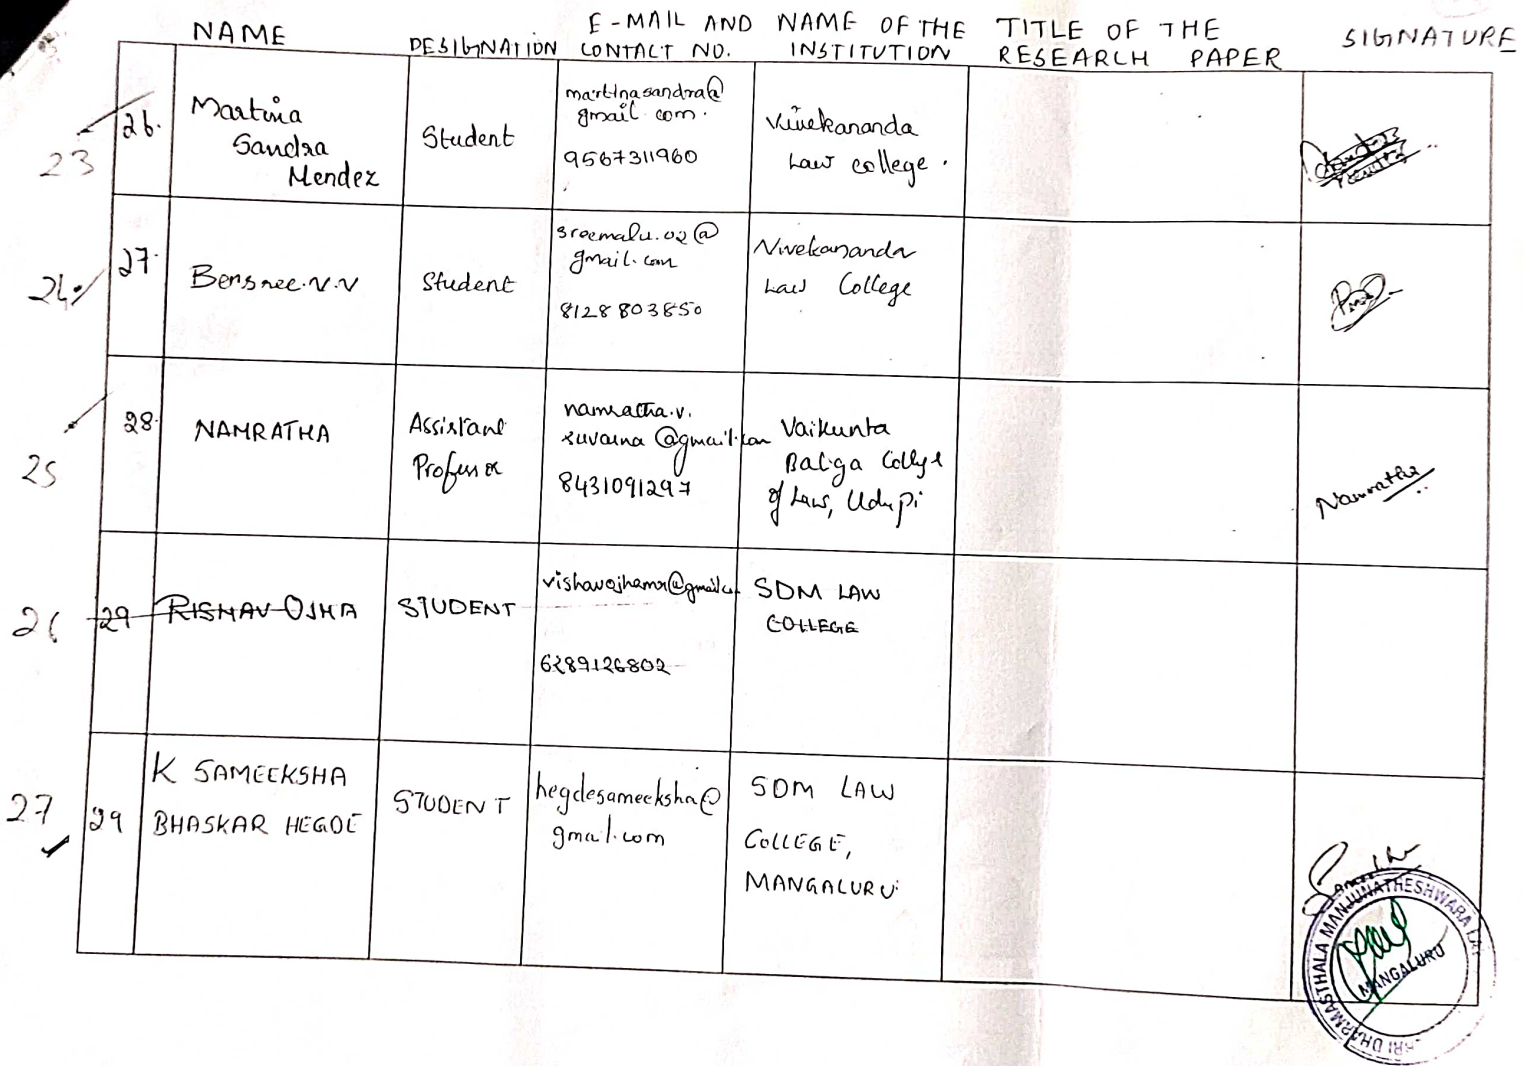 NAME
DESIGNATION
E-MAIL AND
CONTACT NO.
NAME OF THE
INSTITUTION
TITLE OF THE
RESEARCH PAPER
SIGNATURE
23
26.
Martina
Sandra
Mendez
Student
martinasandra@
gmail.com.
9567311960
Vivekananda
Law College.
24.
27.
Bensree.V.V
Student
sreemalu.02@
gmail.com
8128803850
Vivekananda
Law College
25
28.
NAMRATHA
Assistant
Professor
namratha.v.
suvarna@gmail.com
8431091297
Vaikunta
Baliga College
of Law, Udupi
Namratha
26
29
RISHAV OJHA
STUDENT
6289126802
SDM LAW
COLLEGE
27
29
K SAMEEKSHA
BHASKAR HEGDE
STUDENT
hegdesameeksha@
gmail.com
SDM LAW
COLLEGE,
MANGALURU
SRI DHARMASTHALA MANJUNATHESHWARA LAW
MANGALURU